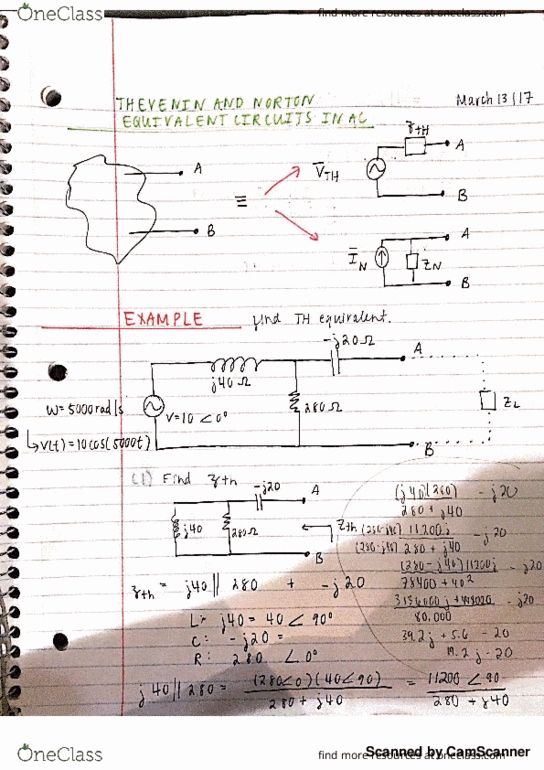 OneClass
find more resources at oneclass.com
THEVENIN AND NORTON
EQUIVALENT CIRCUITS IN AC
March 13/17
A
B
≡
V̅TH
zTH
A
B
I̅N
ZN
A
B
EXAMPLE find TH equivalent.
j40Ω
-j20Ω
A
280Ω
ZL
W=5000rad/s
V=10∠0°
↳V(t)=10cos(5000t)
B
(1) Find zth
-j20
A
j40
280Ω
Zth
B
(j40)(280) - j20
280 + j40
11200j - j20
280 + j40
(280-j40)11200j - j20
78400 + 40²
- j20
80,000
39.2j + 5.6 - 20
19.2j - 20
zth = j40 || 280 + -j20
L: j40 = 40 ∠90°
C: -j20 =
R: 280 ∠0°
j40||280 = (280∠0)(40∠90) = 11200∠90
280 + j40 280 + j40
OneClass
find more resources at oneclass.com
Scanned by CamScanner